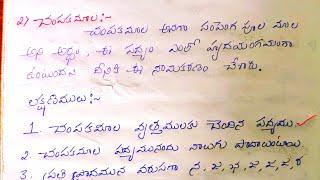 2) చంపకమాల:-
చంపకమాల అనగా సంపెంగ పూల మాల
అని అర్థం. ఈ పద్యం ఎంతో హృదయంగమంగా
ఉంటుందని దీనికి ఈ నామకరణం చేశారు.
లక్షణములు:-
1. చంపకమాల వృత్తములకు చెందిన పద్యము.
2 చంపకమాల పద్యమునందు నాలుగు పాదాలుంటాయి.
3. ప్రతి పాదమున వరుసగా న, జ, భ, జ, జ, జ, ర